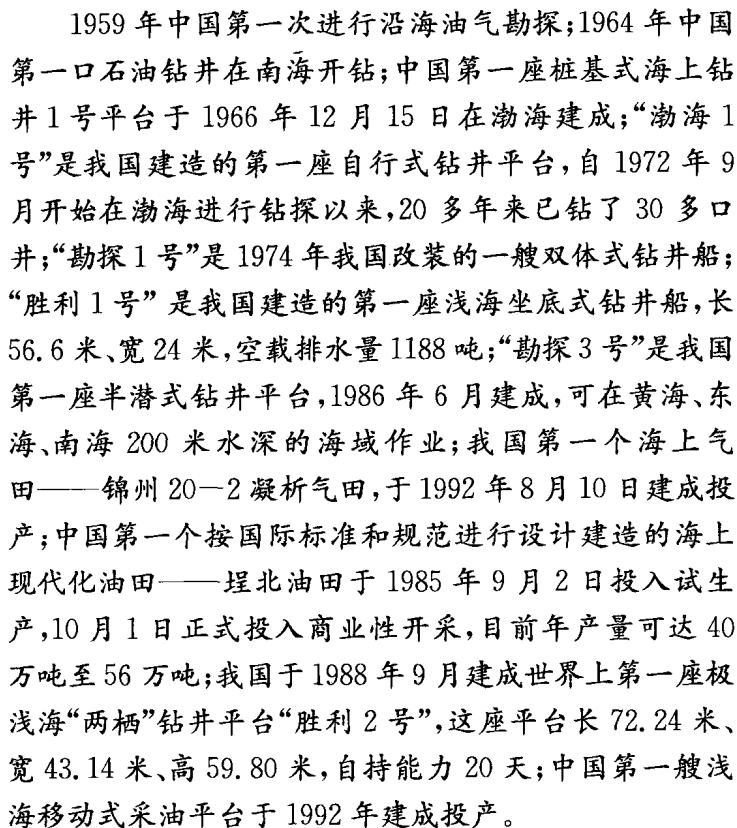 1959 年中国第一次进行沿海油气勘探;1964 年中国
第一口石油钻井在南海开钻;中国第一座桩基式海上钻
井 1 号平台于 1966 年 12 月 15 日在渤海建成;“渤海 1
号”是我国建造的第一座自行式钻井平台,自 1972 年 9
月开始在渤海进行钻探以来,20 多年来已钻了 30 多口
井;“勘探 1 号”是 1974 年我国改装的一艘双体式钻井船;
“胜利 1 号” 是我国建造的第一座浅海坐底式钻井船,长
56.6 米、宽 24 米,空载排水量 1188 吨;“勘探 3 号”是我国
第一座半潜式钻井平台,1986 年 6 月建成,可在黄海、东
海、南海 200 米水深的海域作业;我国第一个海上气
田——锦州 20—2 凝析气田,于 1992 年 8 月 10 日建成投
产;中国第一个按国际标准和规范进行设计建造的海上
现代化油田——埕北油田于 1985 年 9 月 2 日投入试生
产,10 月 1 日正式投入商业性开采,目前年产量可达 40
万吨至 56 万吨;我国于 1988 年 9 月建成世界上第一座极
浅海“两栖”钻井平台“胜利 2 号”,这座平台长 72.24 米、
宽 43.14 米、高 59.80 米,自持能力 20 天;中国第一艘浅
海移动式采油平台于 1992 年建成投产。